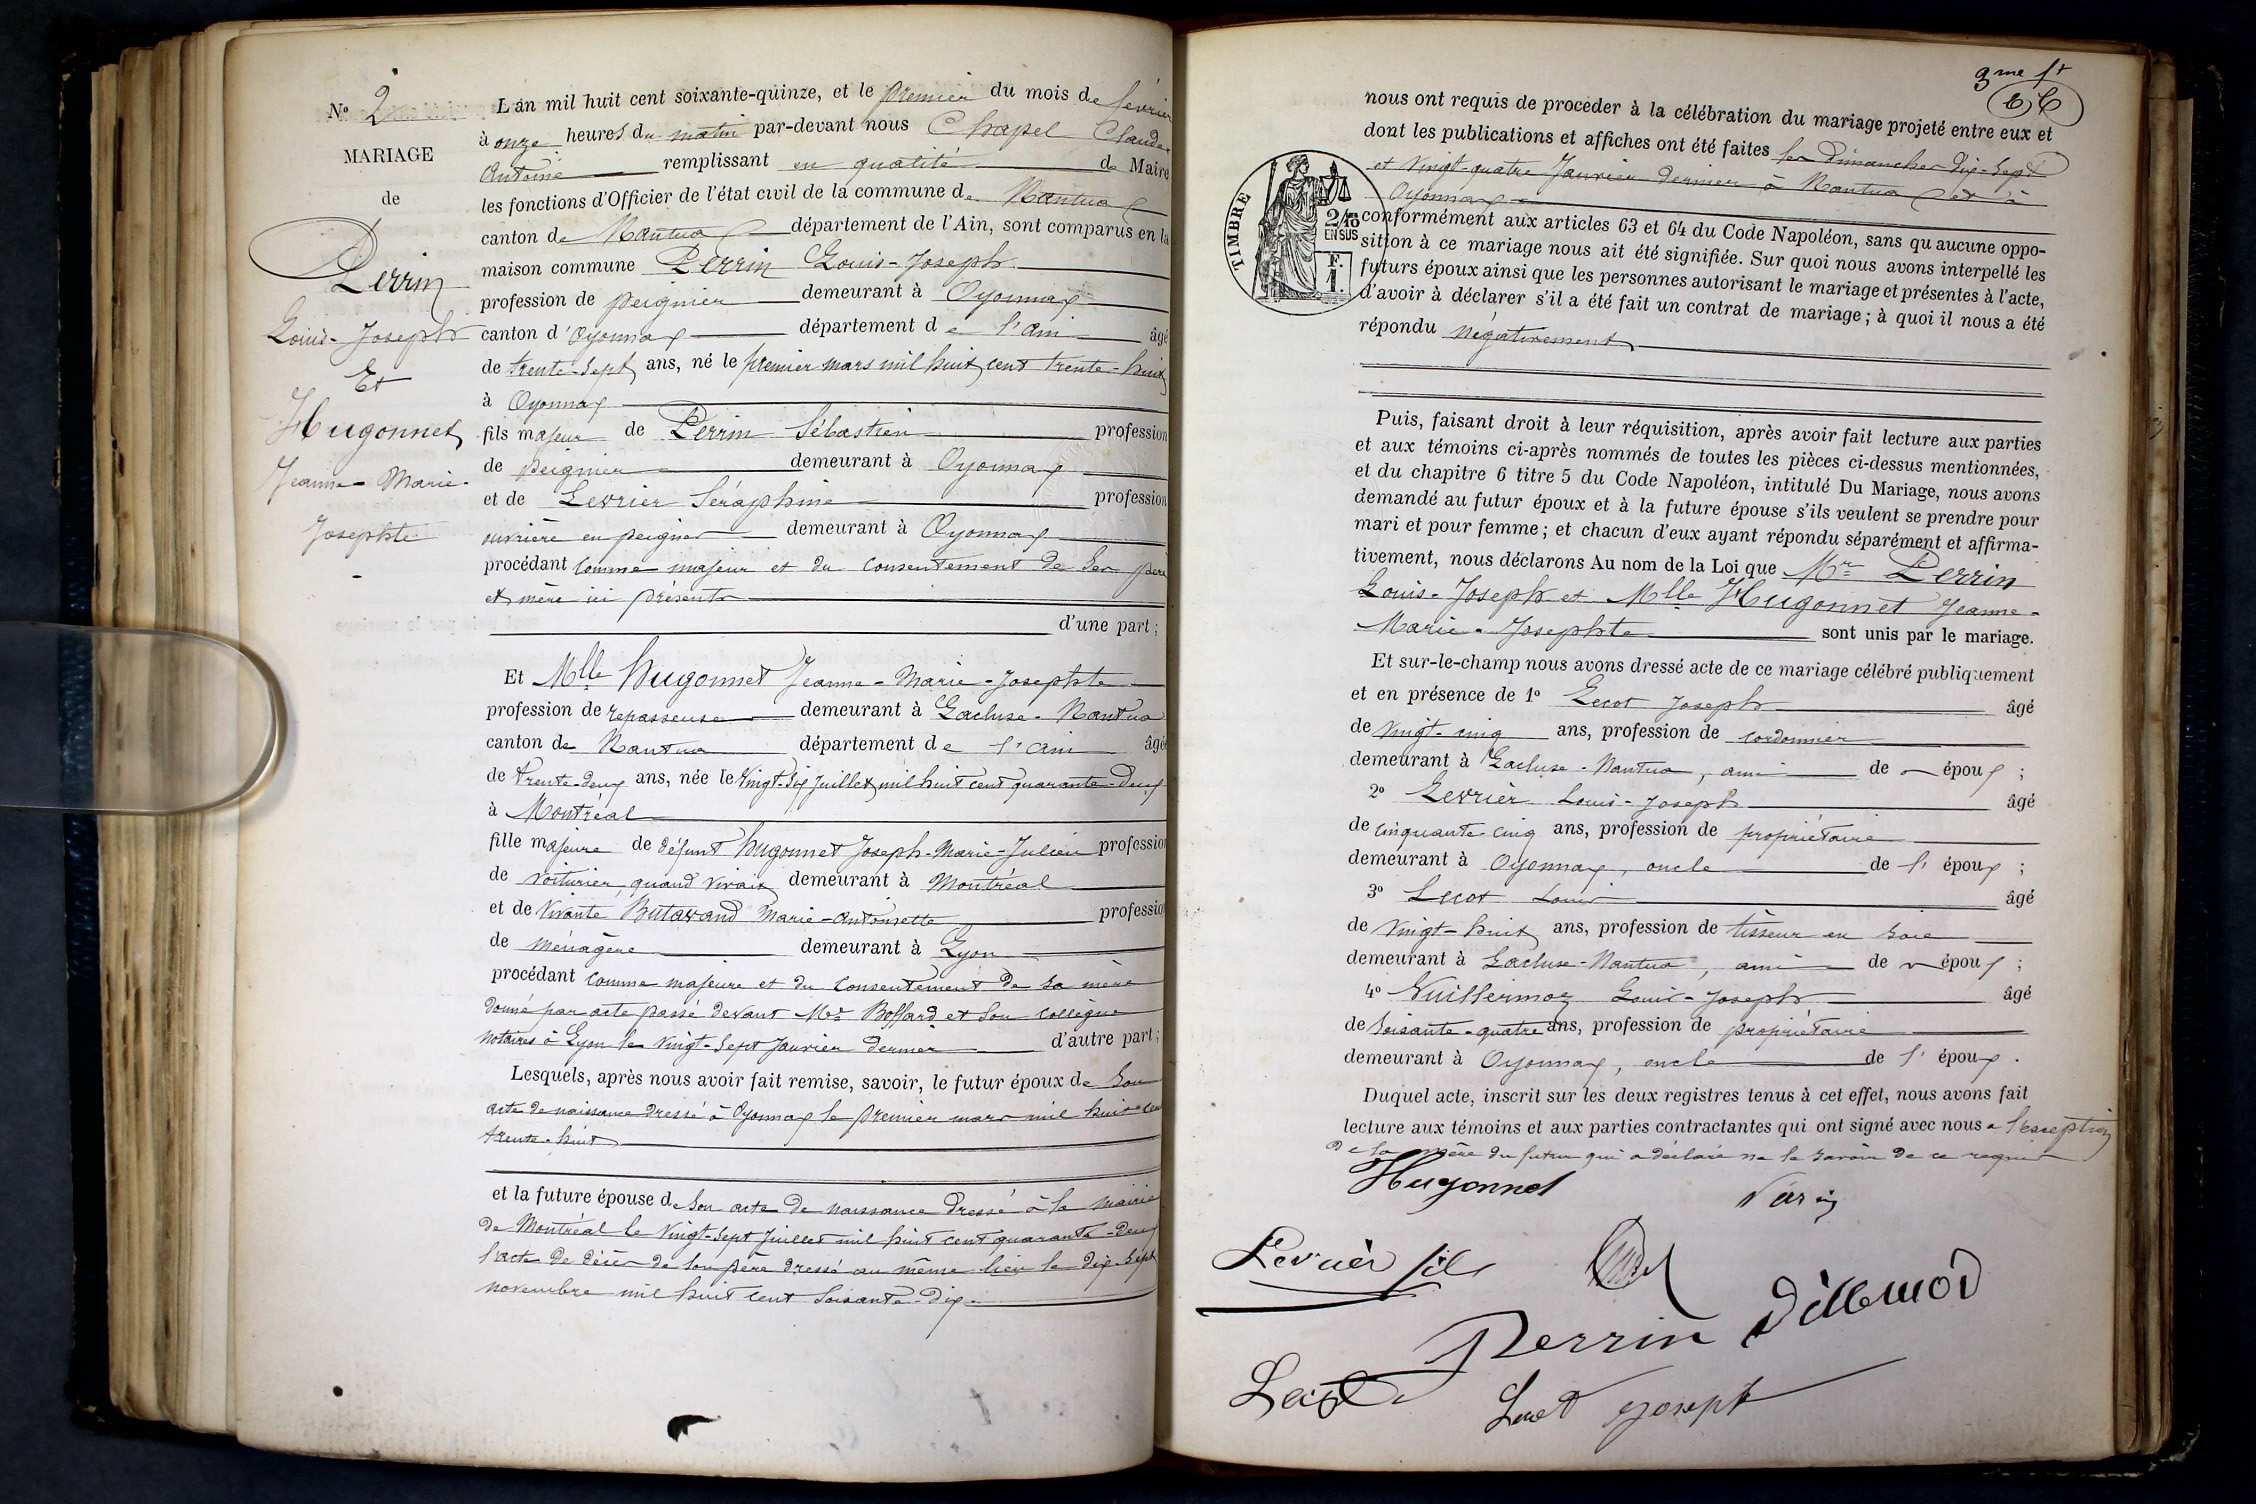 N° 2
MARIAGE
de
Perrin
Louis-Joseph
Et
Hugonnet
Jeanne-Marie-
Josephte
L'an mil huit cent soixante-quinze, et le premier du mois de février
à onze heures du matin par-devant nous Chapel Claude-
Antoine remplissant en qualité de Maire
les fonctions d'Officier de l'état civil de la commune de Nantua
canton de Nantua département de l'Ain, sont comparus en la
maison commune Perrin Louis-Joseph
profession de peignier demeurant à Oyonnax
canton d'Oyonnax département de l'ain âgé
de trente-sept ans, né le premier mars mil huit cent trente-huit
à Oyonnax
fils majeur de Perrin Sébastien profession
de peignier demeurant à Oyonnax
et de Levrier Séraphine profession
ouvrière en peignes demeurant à Oyonnax
procédant comme majeur et du consentement de ses père
et mère ici présents
d'une part;
Et Mlle Hugonnet Jeanne-Marie-Josephte
profession de repasseuse demeurant à Lacluse-Nantua
canton de Nantua département de l'ain âgée
de trente-deux ans, née le vingt-six juillet mil huit cent quarante-deux
à Montréal
fille majeure de défunt Hugonnet Joseph-Marie-Julien profession
de voiturier, quand vivait demeurant à Montréal
et de vivante Butavand Marie-Antoinette profession
de ménagère demeurant à Lyon
procédant comme majeure et du consentement de sa mère
donné par acte passé devant Me Boffard et son collègue
notaires à Lyon le vingt-sept janvier dernier d'autre part;
Lesquels, après nous avoir fait remise, savoir, le futur époux de son
acte de naissance dressé à Oyonnax le premier mars mil huit cent
trente-huit
et la future épouse de son acte de naissance dressé à la mairie
de Montréal le vingt-sept juillet mil huit cent quarante-deux
l'acte de décès de son père dressé au même lieu le dix-sept
novembre mil huit cent soixante-dix.
3me ft
nous ont requis de procéder à la célébration du mariage projeté entre eux et
dont les publications et affiches ont été faites les dimanches dix-sept
et vingt-quatre janvier dernier à Nantua et à
Oyonnax
TIMBRE
2/10
EN SUS
F.
1.
conformément aux articles 63 et 64 du Code Napoléon, sans qu'aucune oppo-
sition à ce mariage nous ait été signifiée. Sur quoi nous avons interpellé les
futurs époux ainsi que les personnes autorisant le mariage et présentes à l'acte,
d'avoir à déclarer s'il a été fait un contrat de mariage; à quoi il nous a été
répondu négativement
Puis, faisant droit à leur réquisition, après avoir fait lecture aux parties
et aux témoins ci-après nommés de toutes les pièces ci-dessus mentionnées,
et du chapitre 6 titre 5 du Code Napoléon, intitulé Du Mariage, nous avons
demandé au futur époux et à la future épouse s'ils veulent se prendre pour
mari et pour femme; et chacun d'eux ayant répondu séparément et affirma-
tivement, nous déclarons Au nom de la Loi que Mr Perrin
Louis-Joseph et Mlle Hugonnet Jeanne-
Marie-Josephte sont unis par le mariage.
Et sur-le-champ nous avons dressé acte de ce mariage célébré publiquement
et en présence de 1° Lecot Joseph âgé
de vingt-cinq ans, profession de cordonnier
demeurant à Lacluse-Nantua, ami de époux;
2° Levrier Louis-Joseph âgé
de cinquante cinq ans, profession de propriétaire
demeurant à Oyonnax, oncle de l'époux;
3° Lecot Louis âgé
de vingt-huit ans, profession de tisseur en soie
demeurant à Lacluse-Nantua, ami de époux;
4° Vuillermoz Louis-Joseph âgé
de soixante-quatre ans, profession de propriétaire
demeurant à Oyonnax, oncle de l'époux.
Duquel acte, inscrit sur les deux registres tenus à cet effet, nous avons fait
lecture aux témoins et aux parties contractantes qui ont signé avec nous a l'exception
de la mère du futur qui a déclaré ne le savoir de ce requise
Hugonnet
Levrier fils
Perrin
Lecot Joseph